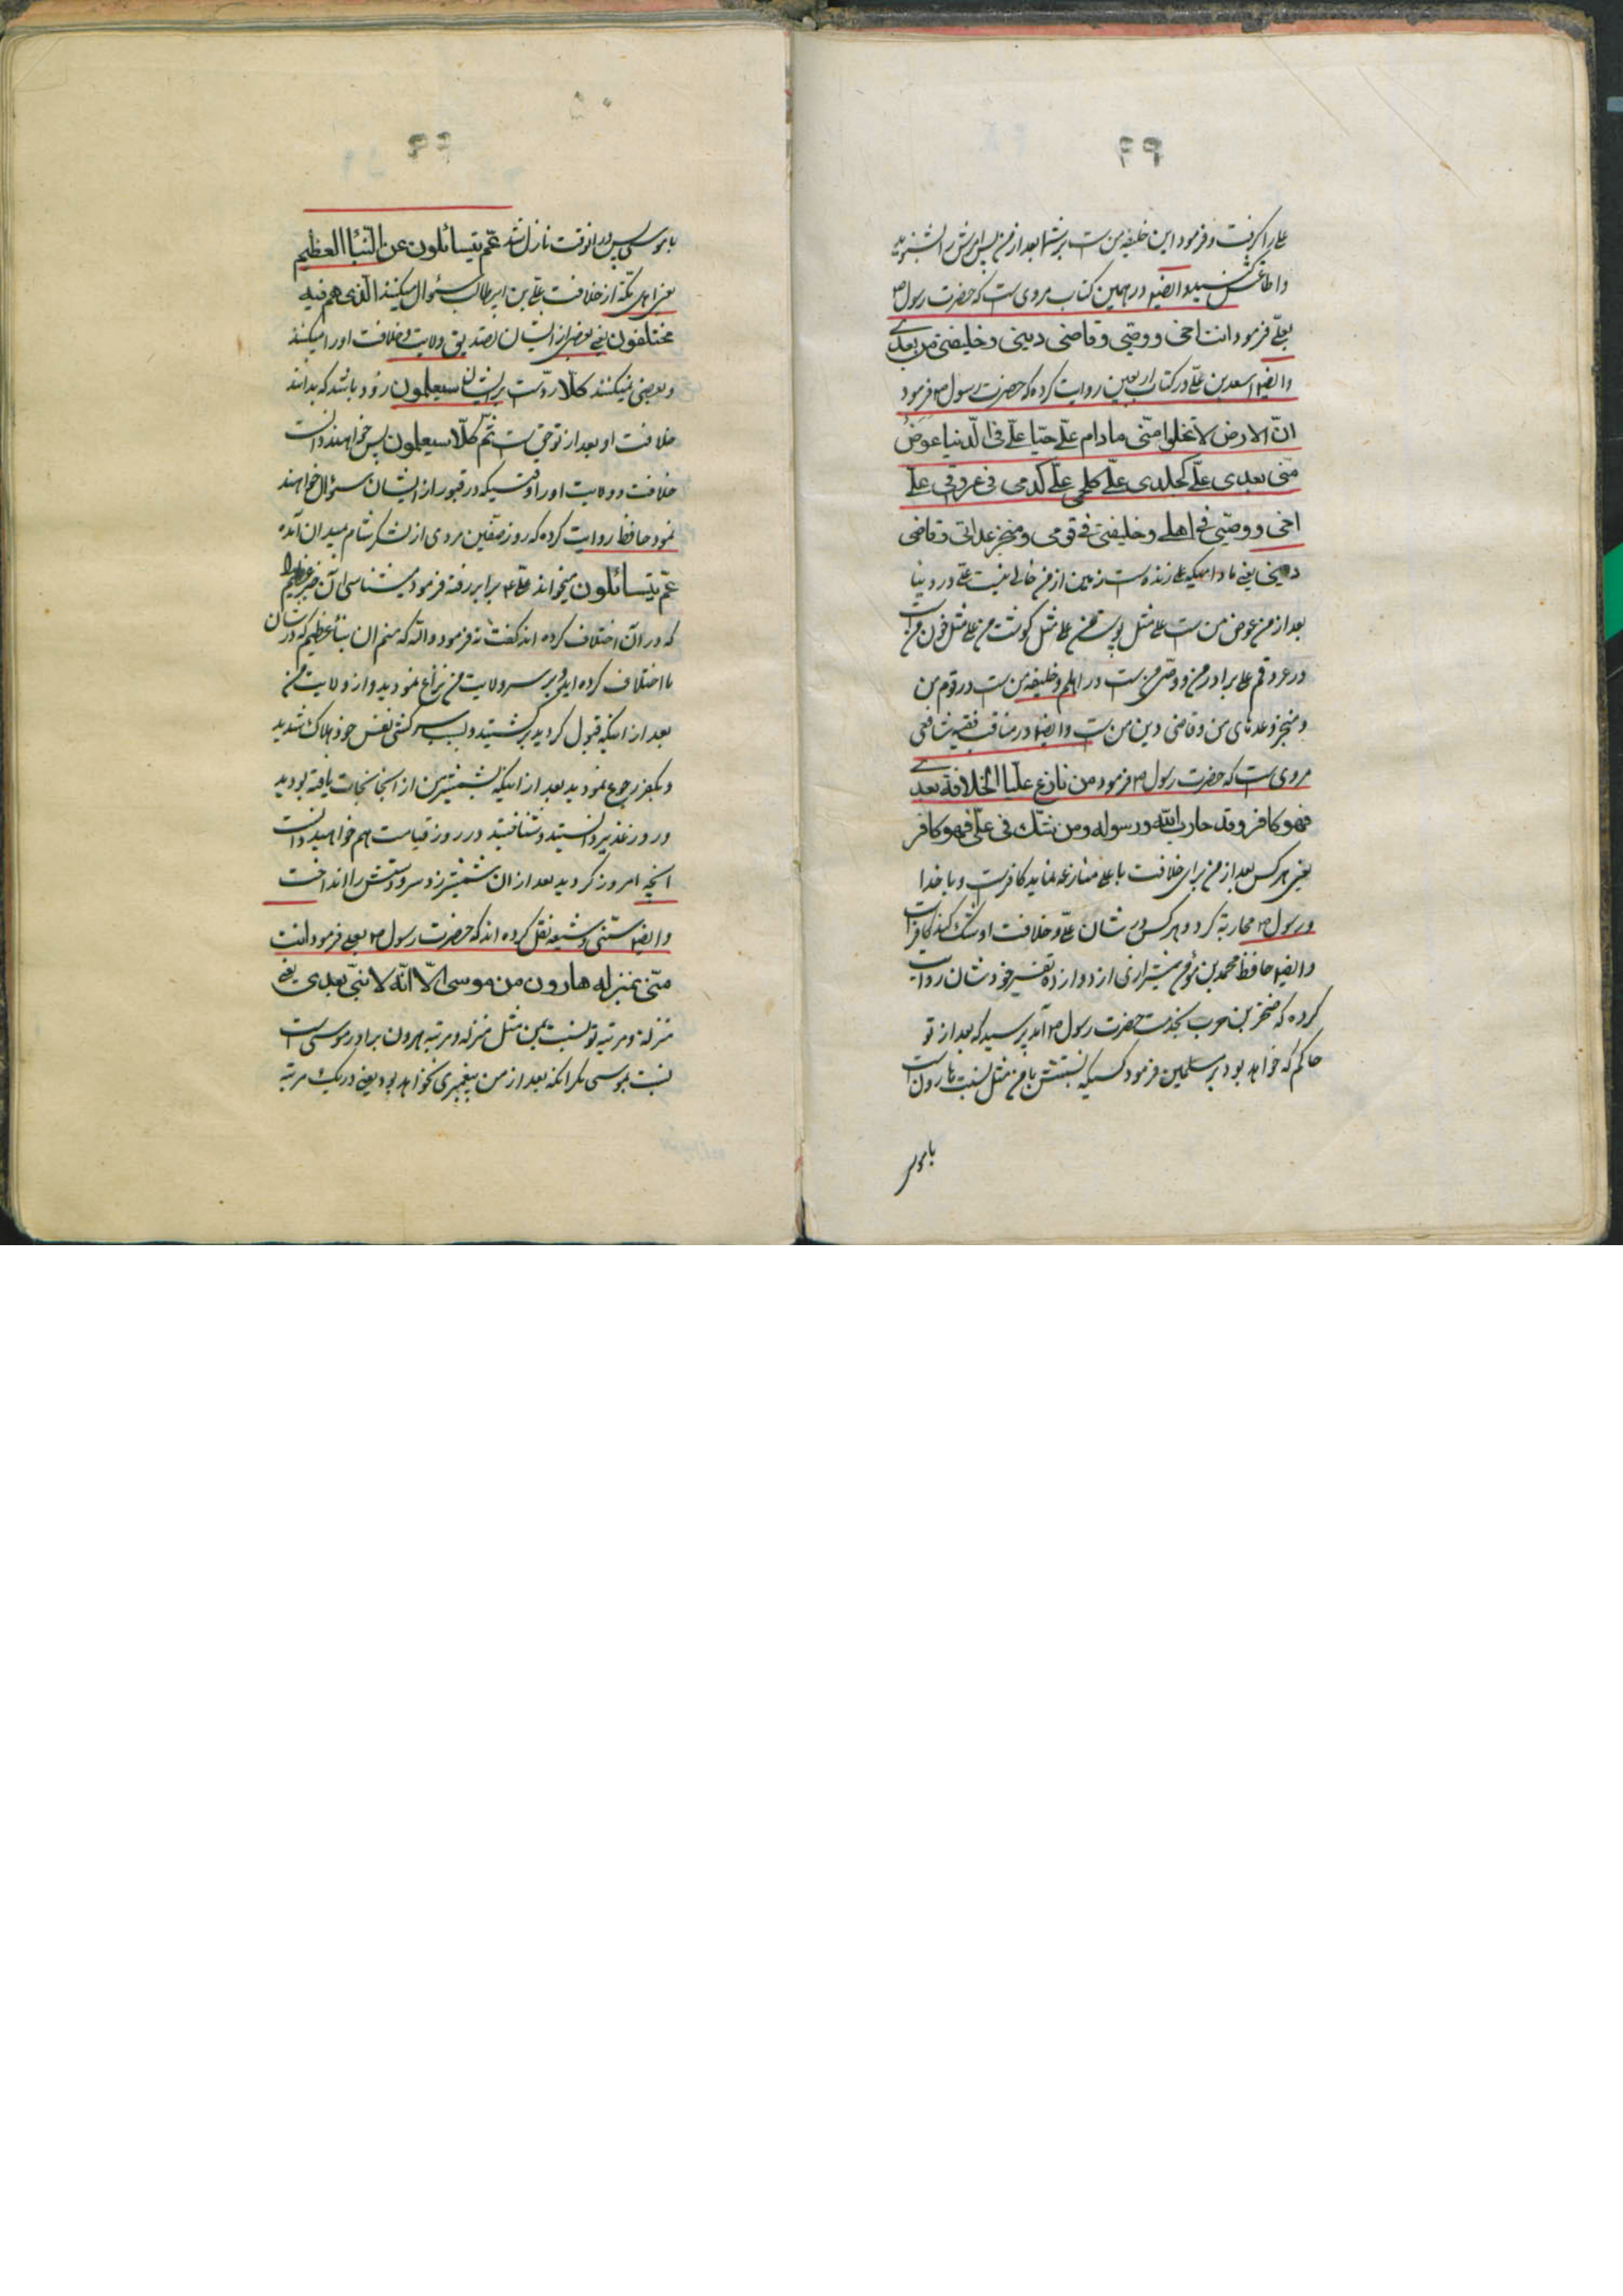 علی را گرفت و فرمود این خلیفه من است بر شما بعد از من پس امرش را بشنوید
و اطاعتش کنید و ایضا در همین کتاب مروی است که حضرت رسول ص
بعلی فرمود انت اخی و وصیی و قاضی دینی و خلیفتی من بعدی
و ایضا اسعد بن علی در کتاب اربعین روایت کرده که حضرت رسول ص فرمود
انّ الارض لا تخلوا منّی مادام علیّ حیّا علیّ فی الدّنیا عوض
منّی بعدی علیّ کجلدی علیّ کلحمی علیّ کدمی فی عروقی علیّ
اخی و وصیّی فی اهلی و خلیفتی فی قومی و منجز عداتی و قاضی
دینی یعنی مادامیکه علی زنده است زمین از من خالی نیست علی در دنیا
بعد از من عوض من است علی مثل پوست من علی مثل گوشت من علی مثل خون من است
در عروقم علی برادر من و وصی من است در اهلم و خلیفه من است در قوم من
و منجز وعدهای من و قاضی دین من است و ایضا در مناقب فقیه شافعی
مروی است که حضرت رسول ص فرمود من نازع علیّا الخلافة بعدی
فهو کافر و قد حارب الله و رسوله و من شکّ فی علیّ فهو کافر
یعنی هر کس بعد از من برای خلافت با علی منازعه نماید کافر است و با خدا
و رسول ص محاربه کرد و هر کس در شان علی و خلافت او شک کند کافر است
و ایضا حافظ محمد بن مؤمن شیرازی از دوازده تفسیر خودشان روایت
کرده که صخر بن حرب بخدمت حضرت رسول ص آمد پرسید که بعد از تو
حاکم که خواهد بود بر مسلمین فرمود کسیکه نسبتش با من مثل نسبت هارون است
باموسی
۴۹
باموسی پس در انوقت نازل شد عمّ یتسائلون عن النّبأ العظیم
یعنی اهل مکّه از خلافت علی بن ابیطالب سئوال میکنند الّذی هم فیه
مختلفون یعنی بعضی از ایشان تصدیق ولایت و خلافت او را میکنند
و بعضی نمیکنند کلّا رد است بر ایشان سیعلمون زود باشد که بدانند
خلافت او بعد از تو حق است ثمّ کلّا سیعلمون پس خواهند دانست
خلافت و ولایت او را وقتیکه در قبور از ایشان سئوال خواهند
نمود حافظ روایت کرده که روز صفّین مردی از لشکر شام بمیدان آمده
عمّ یتسائلون میخواند علی ع برابر رفته فرمود میشناسی آن خبر عظیم را
که در آن اختلاف کرده اند گفت نه فرمود والله که منم ان نبأ عظیم که در شان
ما اختلاف کرده اید و بر سر ولایت من نزاع نمودید و از ولایت من
بعد از اینکه قبول کردید برگشتید و بسبب سرکشی نفس خود هلاک شدید
و بکفر رجوع نمودید بعد از اینکه بشمشیر من از آنجا نجات یافته بودید
و روز غدیر دانستید و شنافتید و در روز قیامت هم خواهید دانست
انچه امروز کردید بعد از ان شمشیر زد و سر و دستش را انداخت
و ایضا سنّی و شیعه نقل کرده اند که حضرت رسول ص بعلی فرمود انت
منّی بمنزله هارون من موسی الّا انّه لا نبیّ بعدی یعنی
منزله و مرتبه تو نسبت بمن مثل منزله و مرتبه هرون برادر موسی است
نسبت بموسی مگر انکه بعد از من پیغمبری نخواهد بود یعنی در یک مرتبه